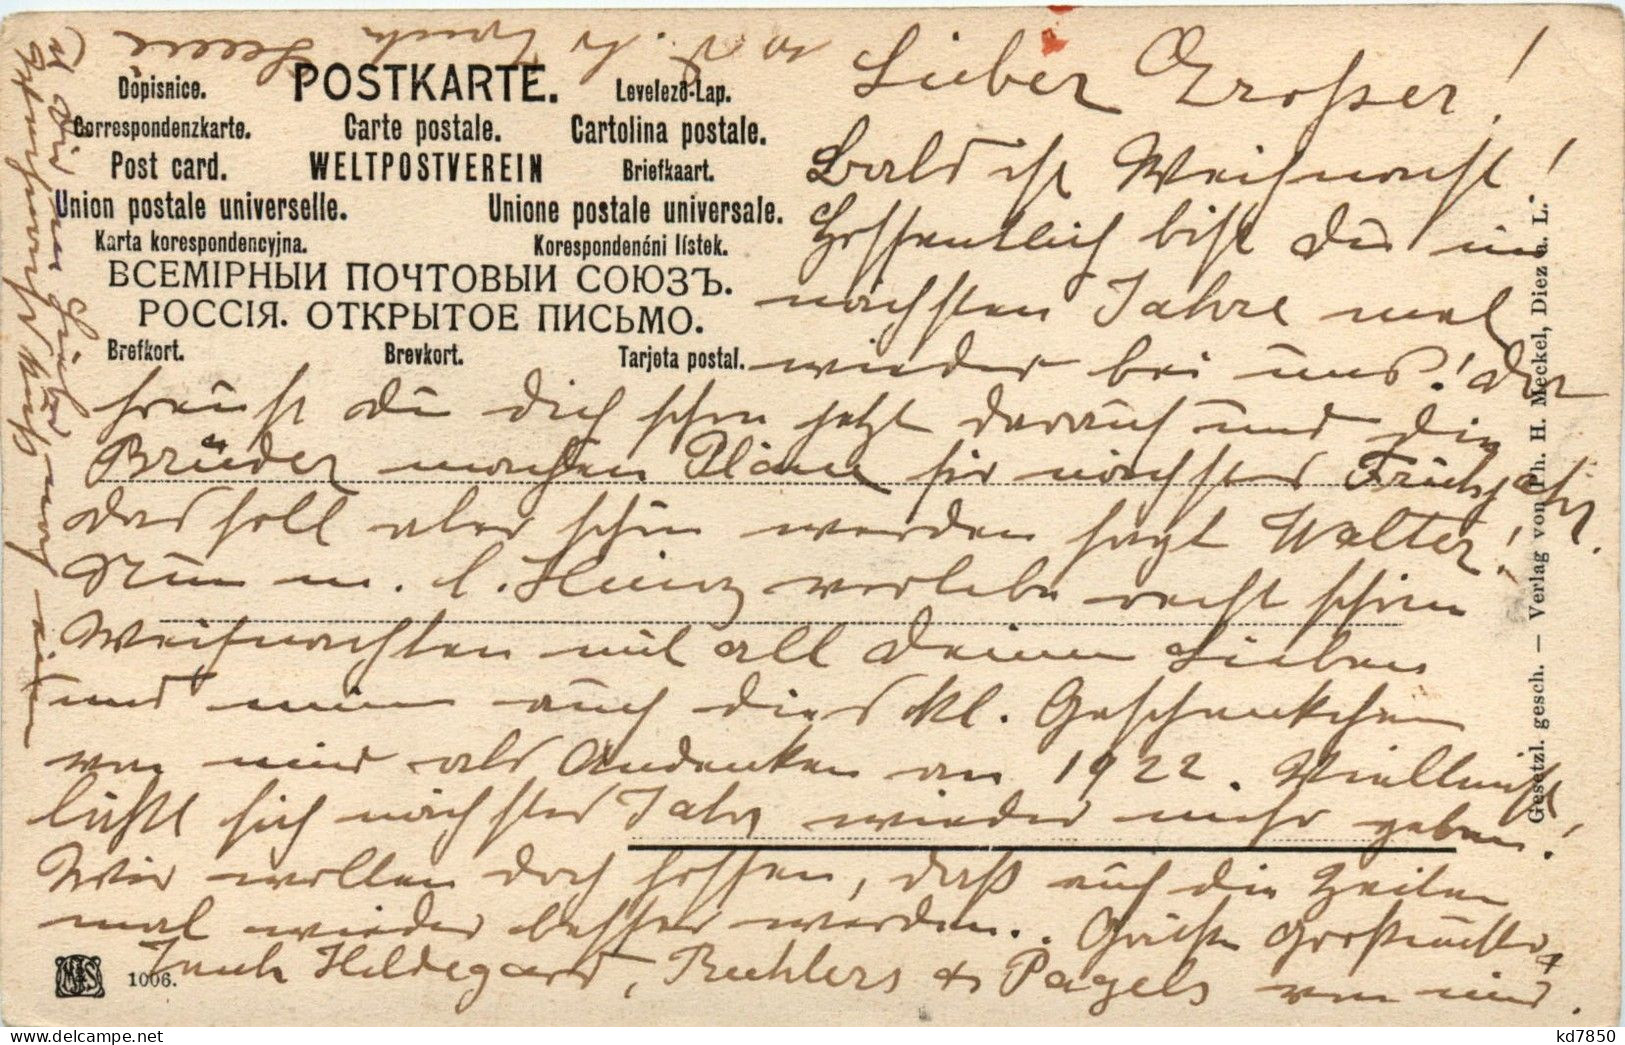 Lieber Großer!
Bald ist Weihnacht!
Hoffentlich bist du im
nächsten Jahre mal
wieder bei uns!
freust du dich schon jetzt darauf und die
Brüder machen Pläne für nächstes Frühjahr,
das soll aber schön werden sagt Walter!
Nun m. l. Heinz verlebe recht schöne
Weihnachten mit all deinen Lieben
und nimm auch dies kl. Geschenkchen
von mir als Andenken an 1922. Vielleicht
läßt sich nächstes Jahr wieder mehr geben!
Wir wollen doch hoffen, daß auch die Zeiten
mal wieder besser werden. Grüße Großmutter
Tante Hildegard, Buhlers & Pagels von mir.
Dir mein Liebes
Weihnachtskuß von
POSTKARTE.
Dopisnice.
Levelező-Lap.
Correspondenzkarte.
Carte postale.
Cartolina postale.
Post card.
WELTPOSTVEREIN
Briefkaart.
Union postale universelle.
Unione postale universale.
Karta korespondencyjna.
Korespondenčni lístek.
ВСЕМІРНЫЙ ПОЧТОВЫЙ СОЮЗЪ.
РОССІЯ. ОТКРЫТОЕ ПИСЬМО.
Brefkort.
Brevkort.
Tarjeta postal.
Gesetzl. gesch. — Verlag von Ph. H. Meckel, Diez a. L.
1006.
kd7850